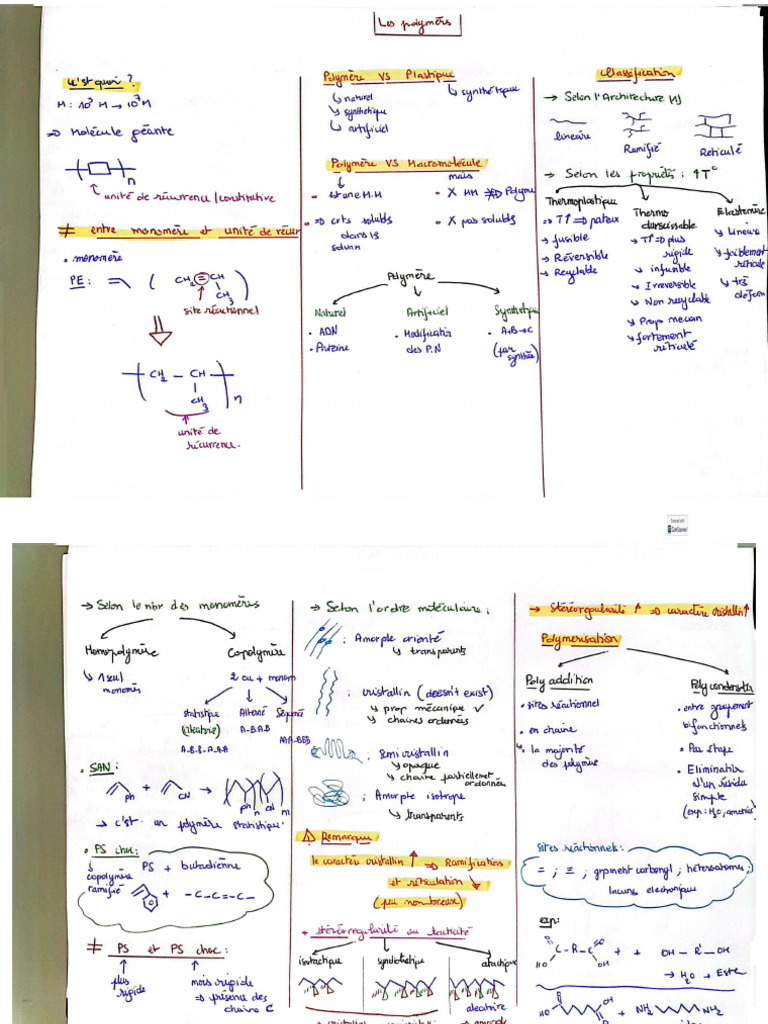 Les polymèrs
C'est quoi ?
M : 10³ M → 10⁷ M
⇒ Molécule géante
n
unité de récurrence / constitutive
≠ entre monomère et unité de récur
• monomère
PE : ( CH₂ = CH
CH₃ )
site réactionnel
CH₂ — CH
CH₃ n
unité de
récurrence.
Polymère VS Plastique
↳ naturel
↳ synthétique
↳ artificiel
↳ synthétique
Polymère VS Macromolécule
mais
• est une M.M
• X MM ⇏ Polym
• ⇒ crts solubls
dans ls
solvan
• X pas solubls
Polymère
Naturel
• ADN
• Protéine
Artificiel
• Modificatio
des P.N
Synthétique
• A+B → C
(par
synthèse)
Classification
→ Selon l'Architecture MJ
linéaire
Ramifié
Réticulé
→ Selon les propriétés : ↑T°
Thermoplastique
⇒ T↑ ⇒ pateux
↳ fusible
↳ Réversible
↳ Recyclable
Thermo
durcissable
↳ T↑ ⇒ plus
rigide
↳ infusible
↳ Irreversible
↳ Non recyclable
↳ Prop mecan
↳ fortement
réticulé
Elastomère
↳ Linéaire
↳ faiblement
réticulé
↳ très
déform
Scanned with
CamScanner
→ Selon le nbr des monomères
Homopolymère
↳ 1 seul
monomès
Copolymère
2 ou + monom
statistique
(aléatoire)
A-B-B-A-A-A
Alterné
A-B-A-B
Séquencé
AA-BBB
• SAN :
Ph + CN → Ph n CN m
→ c'est un polymère statistique.
• PS choc :
↳
copolymère
ramifié
PS + butadienne
+ -C-C=C-C-
≠ PS et PS choc :
plus
rigide
mois rigide
⇒ présence des
chaîne C
→ Selon l'ordre moléculaire ;
: Amorphe orienté
↳ transparents
: cristallin (doesn't exist)
↳ prop mécanique ✓
↳ chaînes ordonnées
: Semicristallin
↳ opaque
↳ chaîne partiellement
ordonnée
: Amorphe isotrope
↳ transparents
⚠ Remarque
le caractére cristallin ↑ ⇒ Ramification
et réticulation ↓
(peu nombreux)
+ stéréoregularité ou tacticité
isotactique
syndiotactique
atactique
aléatoire
→ Stéréoregularité ↑ ⇒ caractère cristallin ↑
Polymérisation
Polyaddition
• sites réactionnel
• en chaîne
↳ la majorité
des polymère
Polycondensation
• entre groupement
bifonctionnels
• Par étape
• Elimination
d'un résidu
simple
(exp : H₂O, amoniac)
sites réactionnels :
= ; ≡ ; grpment carbonyl ; hétéroatomes ;
lacune electronique
exp :
O C — R — C O
HO OH
+ OH — R' — OH
→ H₂O + Este
O OH
HO O
+ NH₂ NH₂